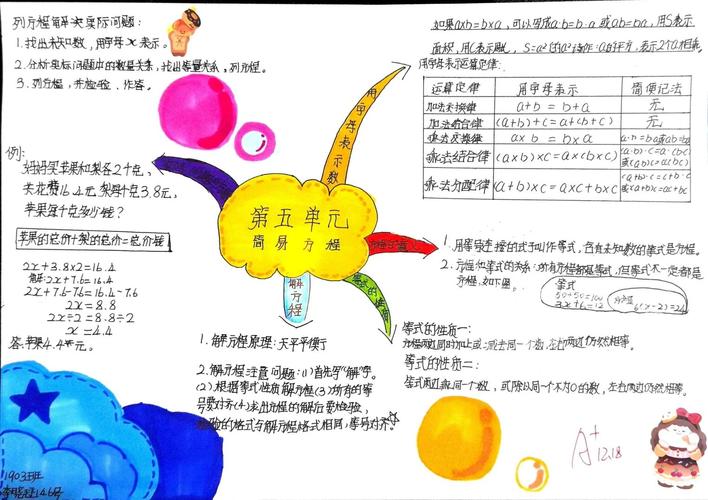 列方程解决实际问题:
1.找出未知数,用字母x表示。
2.分析实际问题中的数量关系,找出等量关系,列方程。
3.列方程,并检验、作答。
例:
妈妈买苹果和梨各2千克,
共花费16.4元,梨每千克3.8元,
苹果每千克多少钱?
苹果的总价+梨的总价=总价钱
2x+3.8×2=16.4
解:2x+7.6=16.4
2x+7.6-7.6=16.4-7.6
2x=8.8
2x÷2=8.8÷2
x=4.4
答:苹果4.4元。
1903班
第五单元
简易方程
用字母表示数
解方程
如果a×b=b×a,可以写成a·b=b·a或ab=ba,用S表示
面积,用C表示周长,
用字母表示运算定律:
运算定律 用字母表示 简便记法
加法交换律 a+b=b+a 无
加法结合律 (a+b)+c=a+(b+c) 无
乘法交换律 a×b=b×a a·b=b·a或ab=ba
乘法结合律 (a×b)×c=a×(b×c) (a·b)·c=a·(b·c)或(ab)c=a(bc)
乘法分配律 (a+b)×c=a×c+b×c
1.用等号连接的式子叫作等式,含有未知数的等式是方程。
2.方程和等式的关系:所有方程都是等式,但等式不一定都是
方程,如下图。
等式
50+50=100
方程
等式的性质一:
方程两边同时加上或减去同一个数,左右两边仍然相等。
等式的性质二:
等式两边乘同一个数,或除以同一个不为0的数,左右两边仍然相等。
1.解方程原理:天平平衡
2.解方程注意问题:(1)首先写“解”。
(2)根据等式性质解方程(3)所有的等
号要对齐(4)求出方程的解后要检验,
检验的格式与解方程格式相同,等号对齐。
A+
12.18